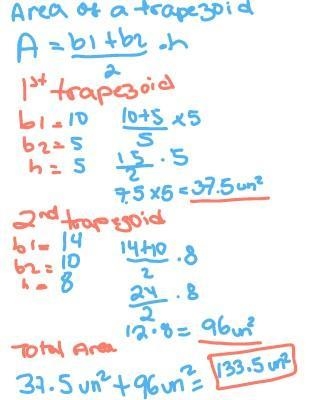 Area of a trapezoid
A = b1+b2/2 · h
1st trapezoid
b1= 10 10+5/5 x5
b2= 5
h= 5 15/2 · 5
7.5 x5 = 37.5 un²
2nd trapezoid
b1= 14 14+10/2 · 8
b2= 10
h= 8 24/2 · 8
12 · 8 = 96un²
Total Area
37.5 un² + 96 un² = 133.5 un²